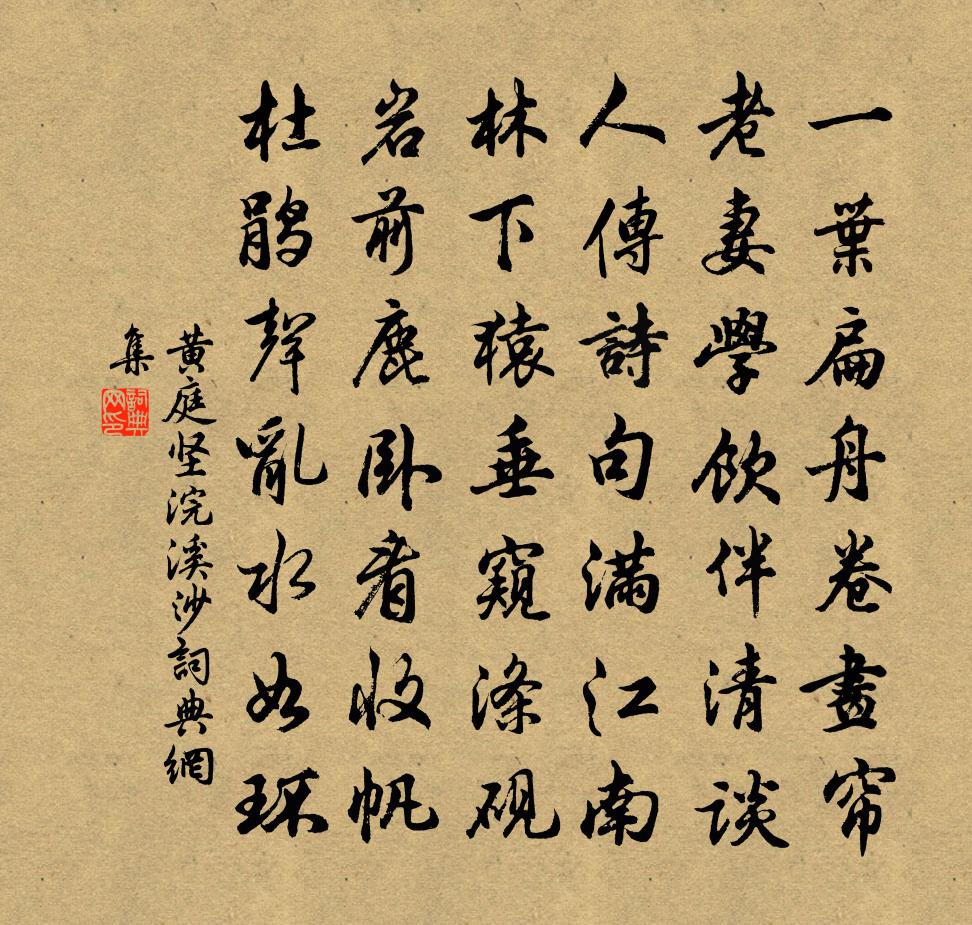 一葉扁舟卷畫帘
老妻學飲伴清谈
人傳詩句滿江南
林下猿垂窺滌硯
岩前鹿卧看收帆
杜鹃聲亂水如环
黄庭坚浣溪沙詞典網
集
詞典
网印